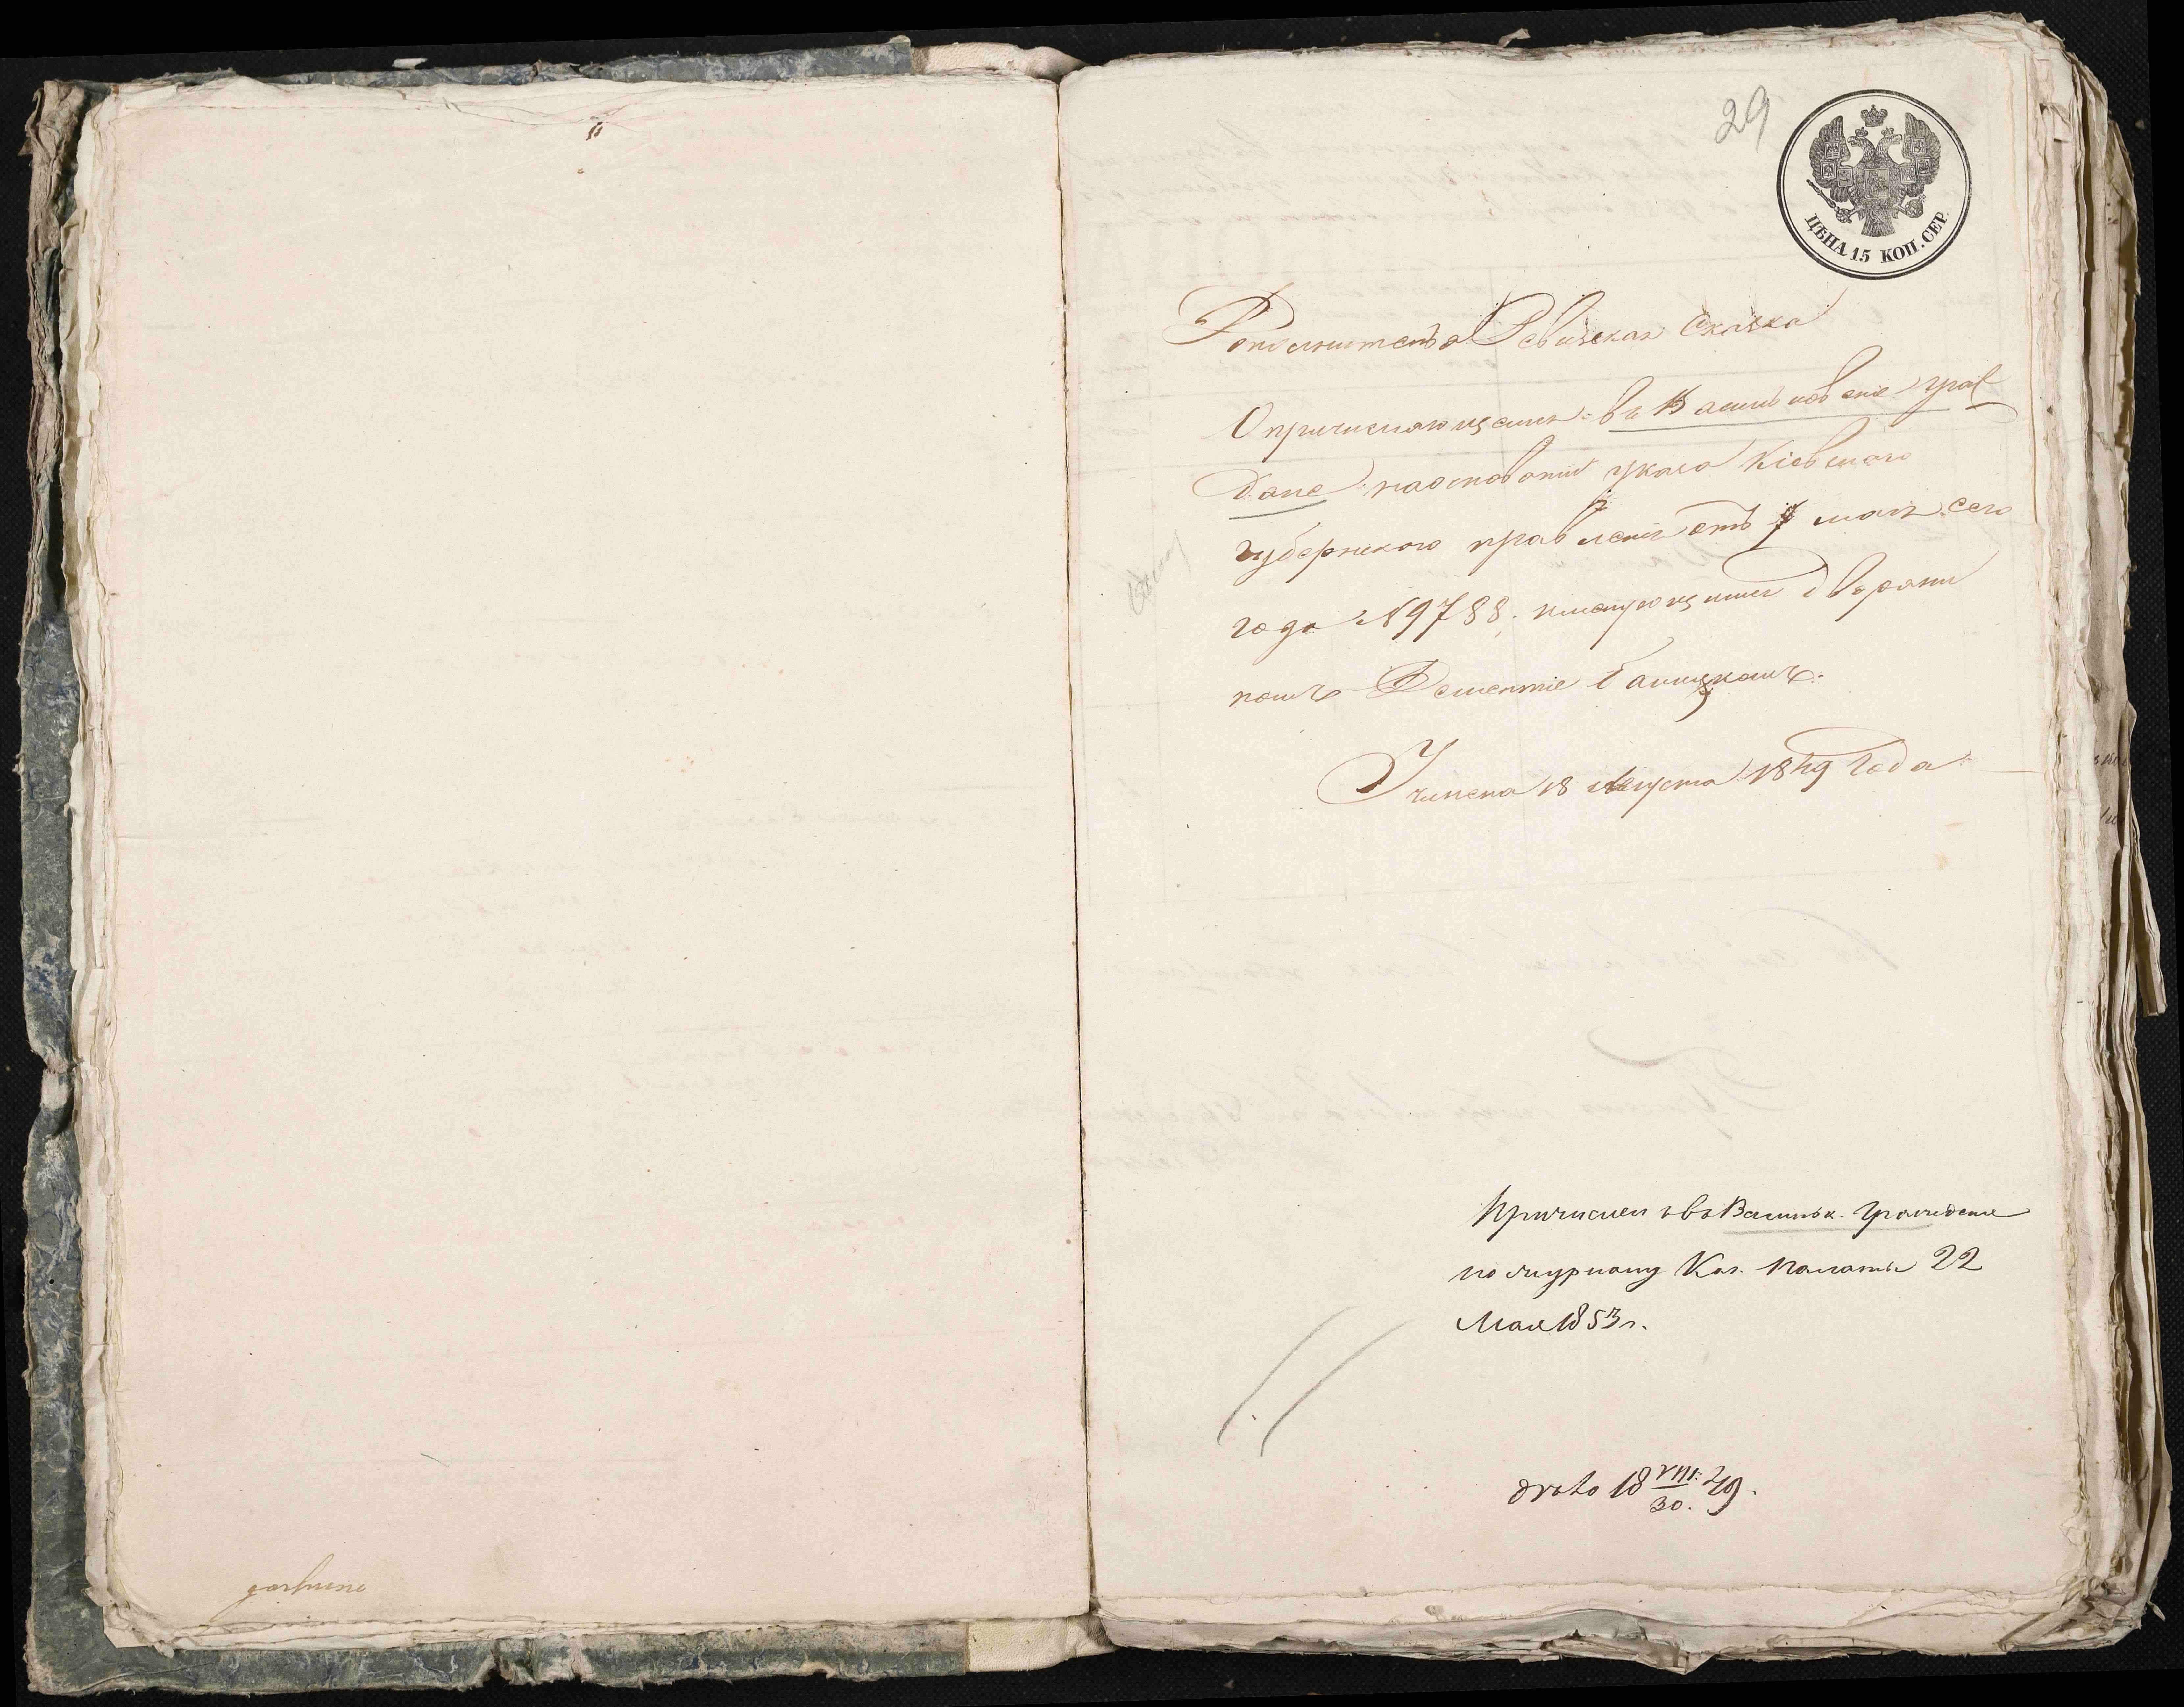 29
ЦѢНА 15 КОП. СЕР.
Дополнительная Ревизская Сказка
О причисляющемся въ Васильковские граж
дане наосновании указа Кіевского
губернского правленія отъ 7 мая сего
года №9788. имянующимся дворяни
номъ Дементіе Баницкомъ.
Учинена 18 Августа 1849 года
Причислен въ Васильк. Граждане
по журналу Каз. Палаты 22
Мая 1853 г.
18 VIII. 49.
30.